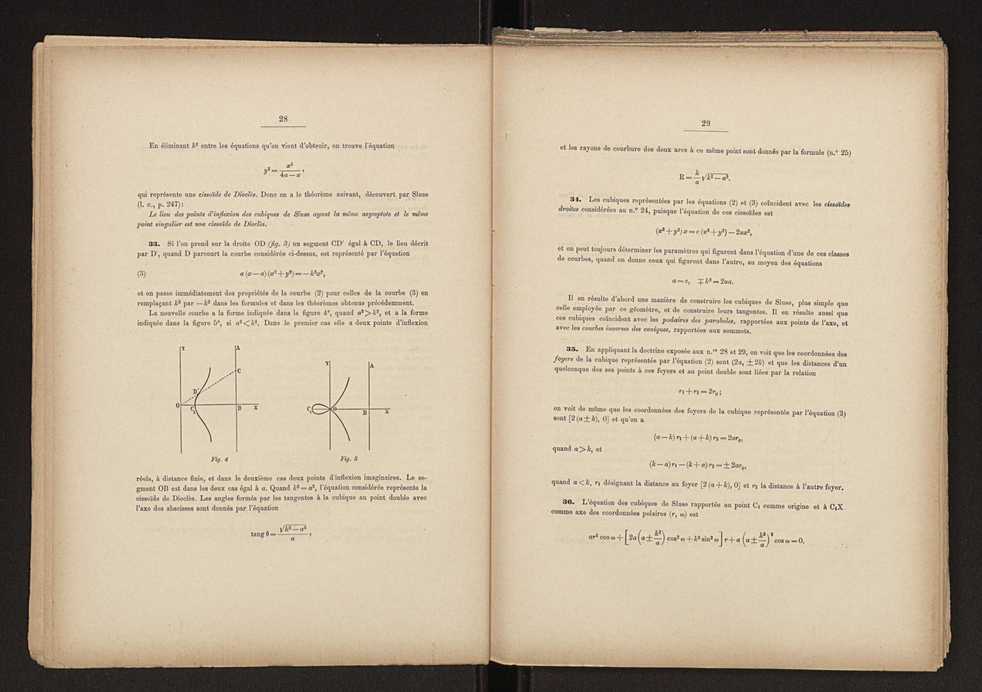 28
En éliminant k² entre les équations qu'on vient d'obtenir, on trouve l'équation
y² = x³ / (4a — x) ,
qui représente une cissoïde de Dioclès. Donc on a le théorème suivant, découvert par Sluse
(l. c., p. 247):
Le lieu des points d'inflexion des cubiques de Sluse ayant la même asymptote et le même
point singulier est une cissoïde de Dioclès.
33. Si l'on prend sur la droite OD (fig. 3) un segment CD' égal à CD, le lieu décrit
par D', quand D parcourt la courbe considérée ci-dessus, est représenté par l'équation
(3) a (x — a) (x² + y²) = — k²x²,
et on passe immédiatement des propriétés de la courbe (2) pour celles de la courbe (3) en
remplaçant k² par — k² dans les formules et dans les théorèmes obtenus précédemment.
La nouvelle courbe a la forme indiquée dans la figure 4ᵉ, quand a² > k², et a la forme
indiquée dans la figure 5ᵉ, si a² < k². Dans le premier cas elle a deux points d'inflexion
Y A C D' O C₁ B X
Y A C₁ O B X
Fig. 4 Fig. 5
réels, à distance finie, et dans le deuxième cas deux points d'inflexion imaginaires. Le se-
gment OB est dans les deux cas égal à a. Quand k² = a², l'équation considérée représente la
cissoïde de Dioclès. Les angles formés par les tangentes à la cubique au point double avec
l'axe des abscisses sont donnés par l'équation
tang θ = √(k² — a²) / a ,
29
et les rayons de courbure des deux arcs à ce même point sont donnés par la formule (n.º 25)
R = k/a √(k² — a²).
34. Les cubiques représentées par les équations (2) et (3) coïncident avec les cissoïdes
droites considérées au n.º 24, puisque l'équation de ces cissoïdes est
(x² + y²) x = c (x² + y²) — 2ax²,
et on peut toujours déterminer les paramètres qui figurent dans l'équation d'une de ces classes
de courbes, quand on donne ceux qui figurent dans l'autre, au moyen des équations
a = c, ∓ k² = 2ac.
Il en résulte d'abord une manière de construire les cubiques de Sluse, plus simple que
celle employée par ce géomètre, et de construire leurs tangentes. Il en résulte aussi que
ces cubiques coïncident avec les podaires des paraboles, rapportées aux points de l'axe, et
avec les courbes inverses des coniques, rapportées aux sommets.
35. En appliquant la doctrine exposée aux n.ᵒˢ 28 et 29, on voit que les coordonnées des
foyers de la cubique représentée par l'équation (2) sont (2a, ± 2k) et que les distances d'un
quelconque des ses points à ces foyers et au point double sont liées par la relation
r₁ + r₂ = 2r₀ ;
on voit de même que les coordonnées des foyers de la cubique représentée par l'équation (3)
sont [2 (a ± k), 0] et qu'on a
(a — k) r₁ + (a + k) r₂ = 2ar₀,
quand a > k, et
(k — a) r₁ — (k + a) r₂ = ± 2ar₀,
quand a < k, r₁ désignant la distance au foyer [2 (a + k), 0] et r₂ la distance à l'autre foyer.
36. L'équation des cubiques de Sluse rapportée au point C₁ comme origine et à C₁X
comme axe des coordonnées polaires (r, ω) est
ar² cos ω + [2a (a ± k²/a) cos² ω + k² sin² ω] r + a (a ± k²/a)² cos ω = 0.